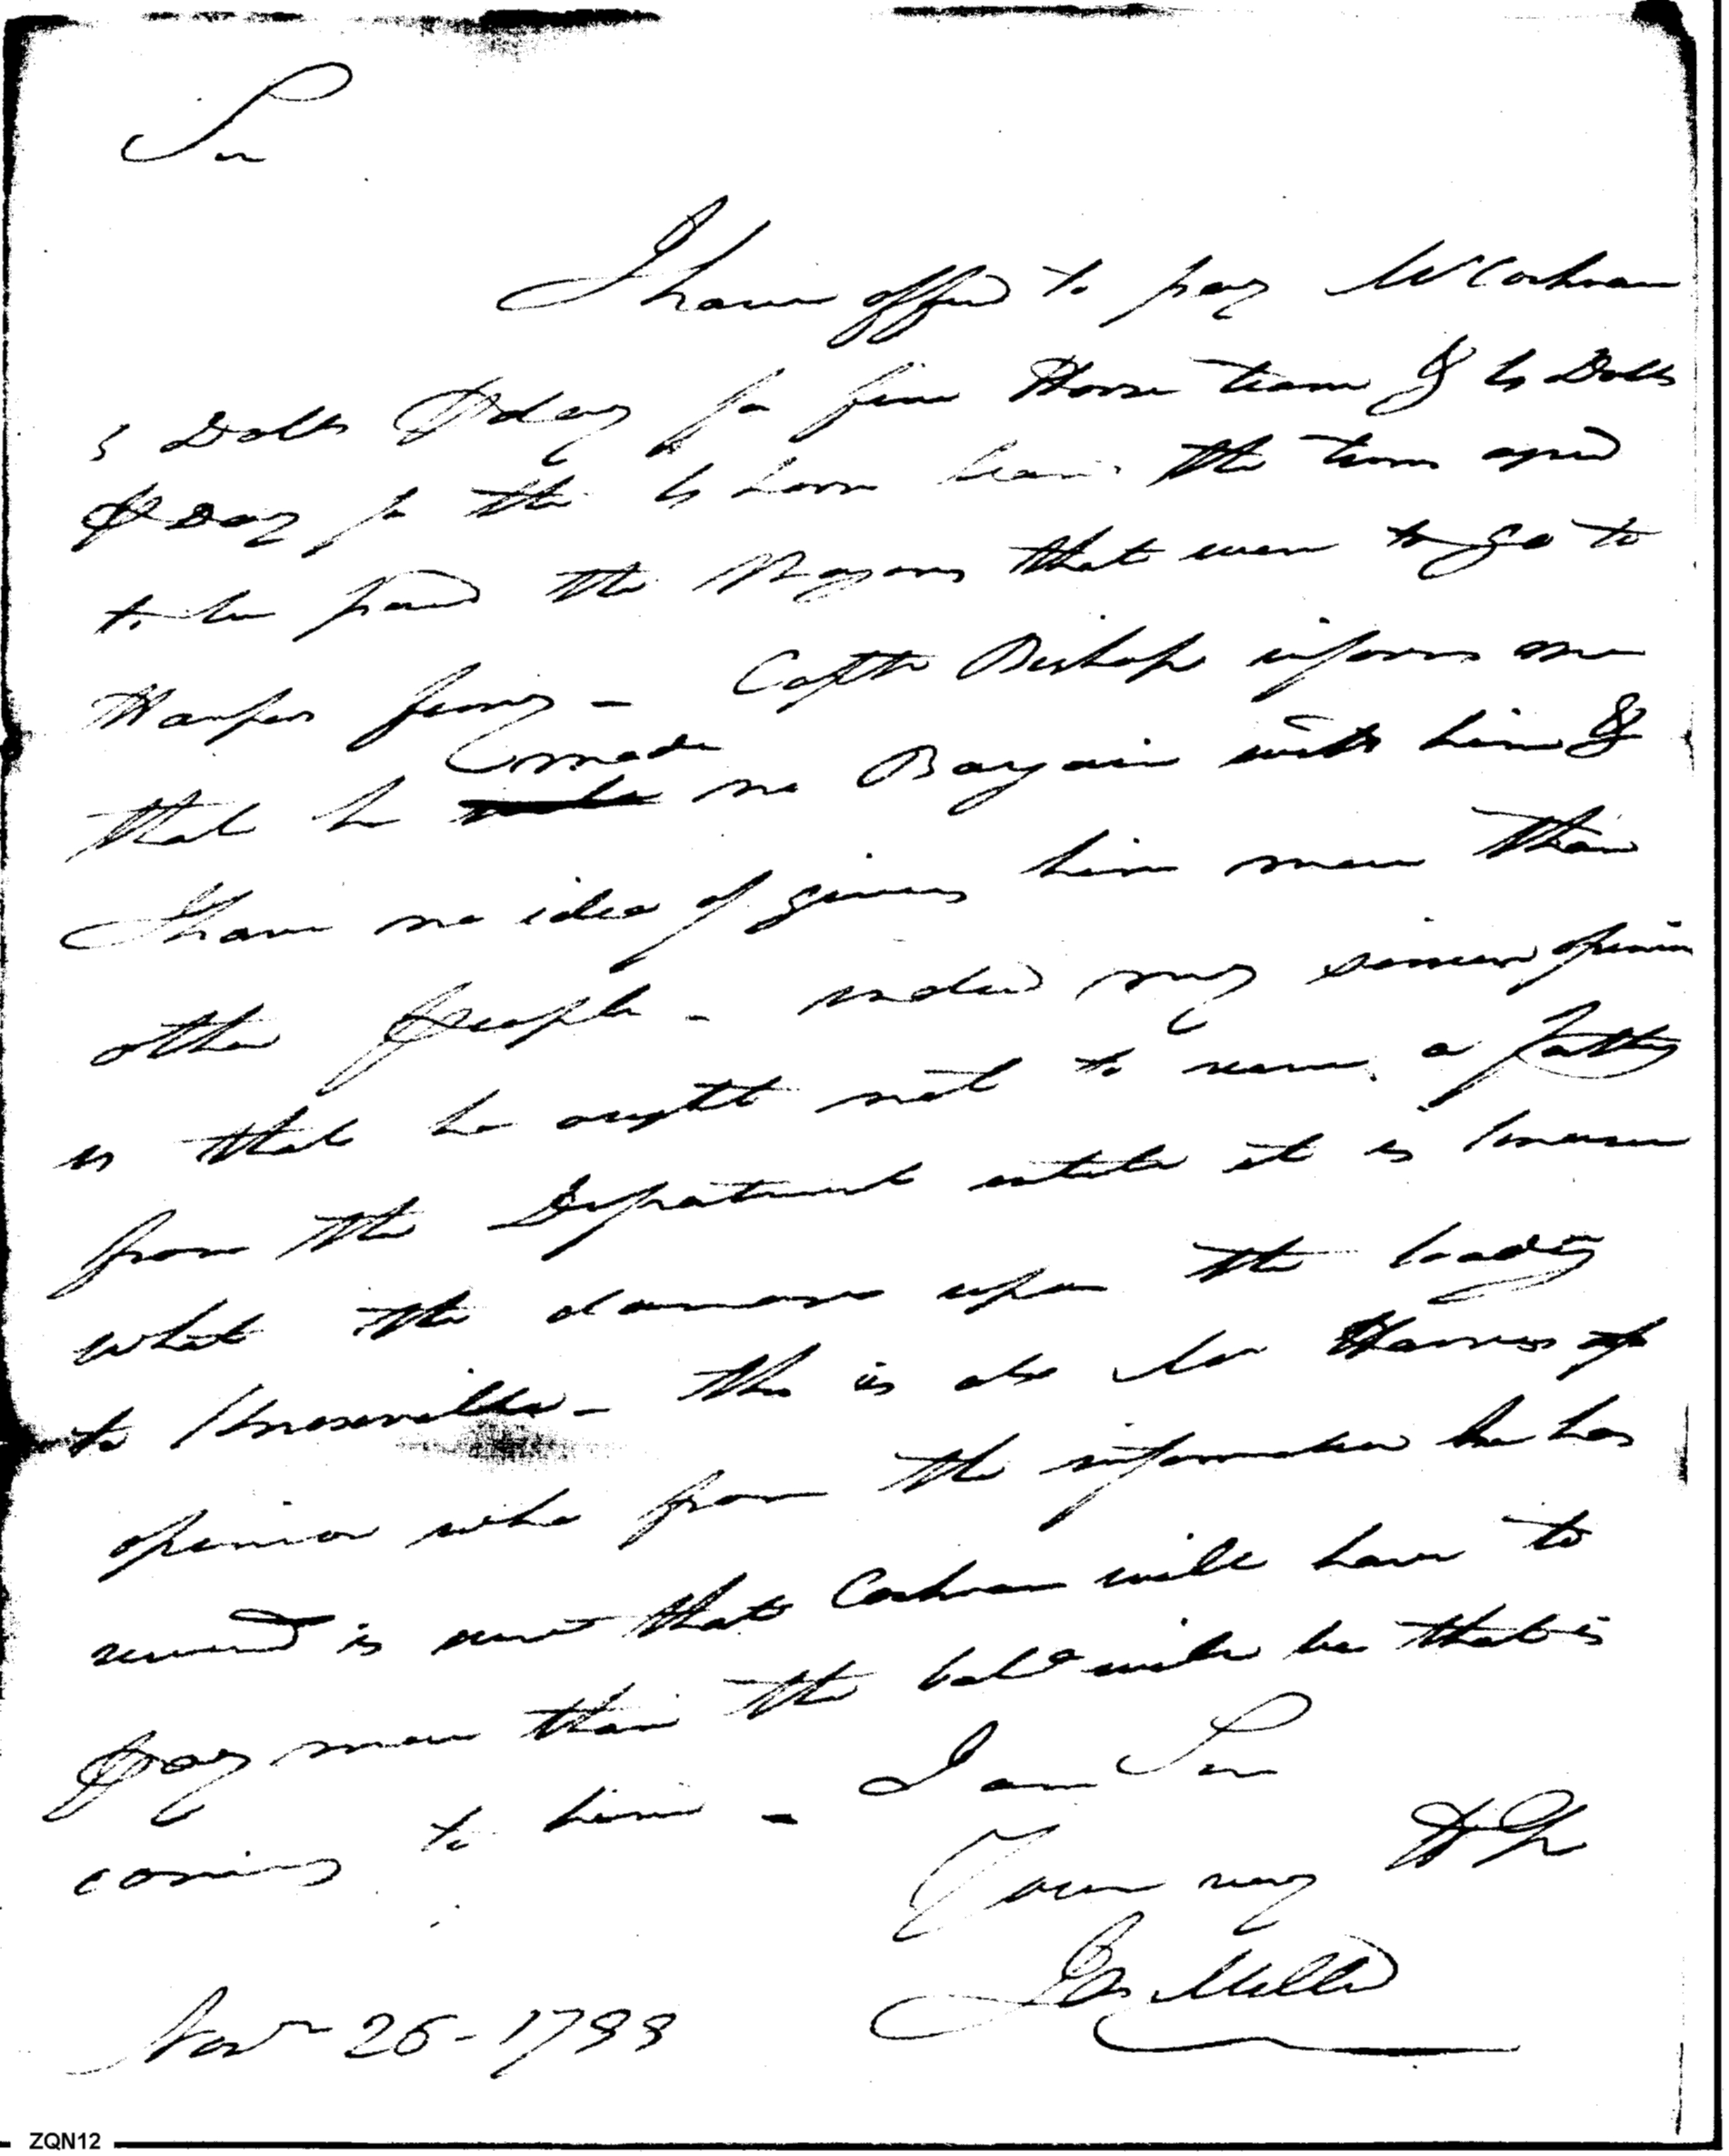 Sir
I have offerd to pay Mr Cochran
5 Dolls ⅌ day for five Horse team & 6 Dolls
⅌ Day for the 6 horse team the terms agreed
to be paid the Wagons that were to go to
Harpers ferry - Captn Bishop informs me
made
that he no Bargain with him &
I have no idea of giving him more than
other people - indeed my sincere opinion
is that he ought not to receive a farthing
from the Department untill it is known
what the damages upon the loading
to Knoxville - this is also Mr Harris's
opinion who from the information he has
received is sure that Cochran will have to
pay more than the bale will be that is
coming to him - I am Sir
Your very
Jno Miller
Novr 26 - 1799
ZQN12